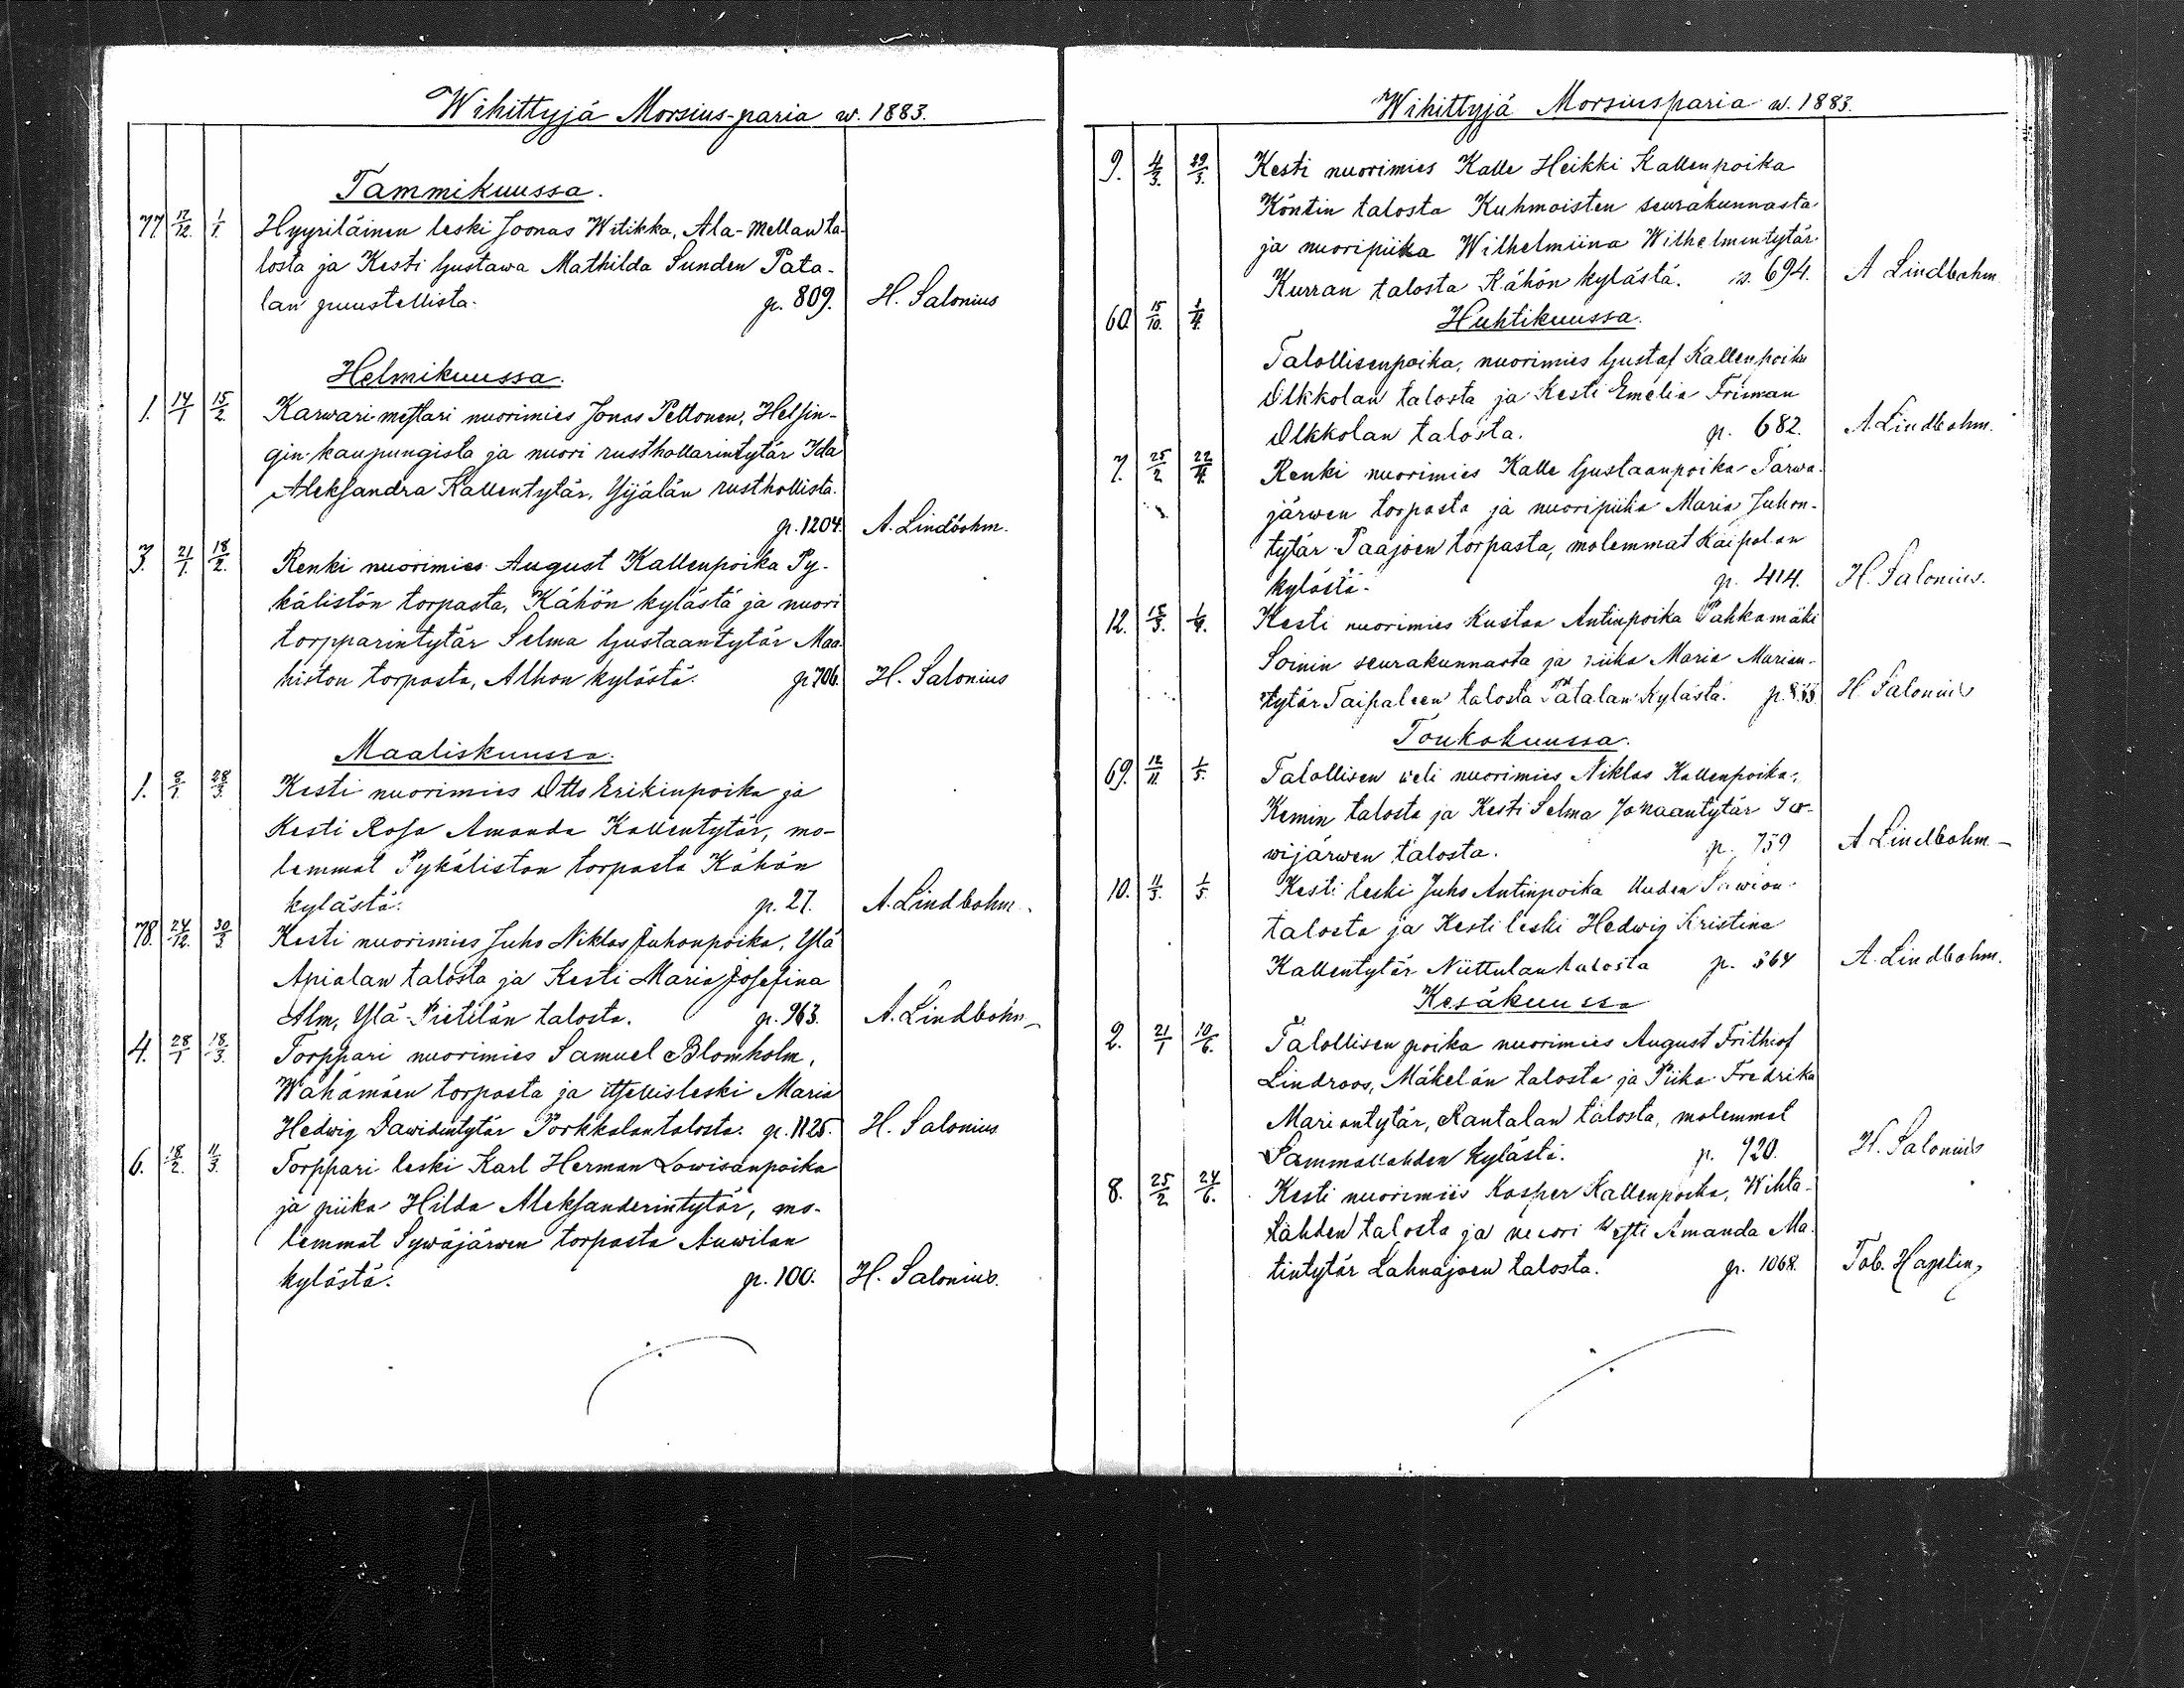 Wihittyjä Morsius-paria w. 1883.
Tammikuussa.
77. 17/12. 1/1. Hyyriläinen leski Joonas Witikka, Ala-Mellan ta-
losta ja Kesti Gustawa Mathilda Sunden Pata-
lan puustellista. p. 809. H. Salonius
Helmikuussa.
1. 14/1 15/2. Karwari mestari nuorimies Jonas Peltonen, Helsin-
gin kaupungista ja nuori rusthollarintytär Ida
Aleksandra Kallentytär, Yijälän rusthollista.
p. 1204. A. Lindbohm.
3. 21/1. 18/2. Renki nuorimies August Kallenpoika Py-
kälistön torpasta, Kähön kylästä ja nuori
torpparintytär Selma Gustaantytär Maa-
histon torpasta, Alhon kylästä. p. 706. H. Salonius
Maaliskuussa.
1. 28/3. Kesti nuorimies Otto Erikinpoika ja
Kesti Rosa Amanda Kallentytär, mo-
lemmat Pykäliston torpasta Kähön
kylästä. p. 27. A. Lindbohm.
78. 24/12. 30/3 Kesti nuorimies Juho Niklas Juhonpoika, Ylä
Apialan talosta ja Kesti Maria Josefina
Alm, Ylä-Pietilän talosta. p. 963. A. Lindbohm
4. 28/1 18/3. Torppari nuorimies Samuel Blomholm,
Wahämäen torpasta ja itsellisleski Maria
Hedwig Dawidintytär Porkkalan talosta. p. 1125. H. Salonius
6. 18/2. 11/3. Torppari leski Karl Herman Lowisanpoika
ja piika Hilda Aleksanderintytär, mo-
lemmat Sywäjärwen torpasta Auwilan
kylästä. p. 100. H. Salonius.
Wihittyjä Morsiusparia w. 1883.
9. 4/3. 29/3. Kesti nuorimies Kalle Heikki Kallenpoika
Köntin talosta Kuhmoisten seurakunnasta
ja nuoripiika Wilhelmiina Wilhelmintytär
Kurran talosta Kähön kylästä. s. 694. A Lindbohm
60. 15/10. 1/4. Huhtikuussa.
Talollisenpoika, nuorimies Gustaf Kallenpoika
Olkkolan talosta ja Kesti Emelia Friman
Olkkolan talosta. p. 682. A. Lindbohm.
7. 25/2 22/4. Renki nuorimies Kalle Gustaanpoika Tarwa-
järwen torpasta ja nuoripiika Maria Juhon-
tytär Paajoen torpasta, molemmat Kaipolan
kylästä. p. 414. H. Salonius.
12. 18/3. 1/4. Kesti nuorimies Kustaa Antinpoika Pahkamäki
Soinin seurakunnasta ja piika Maria Marian-
tytär Taipaleen talosta Patalan kylästä. H Salonius
Toukokuussa.
69. 12/11. 1/5. Talollisen weli nuorimies Niklas Kallenpoika,
Kemin talosta ja Kesti Selma Jonaantytär
wijärwen talosta. p. 759 A Lindbohm
10. 11/3. 1/5. Kesti leski Juho Antinpoika Uuden Sawion
talosta ja Kesti leski Hedwig Kristina
Kallentytär Niittulan talosta p. 364 A. Lindbohm.
Kesäkuussa
2. 21/1 10/6. Talollisen poika nuorimies August Frithiof
Lindroos, Mäkelän talosta ja Piika Fredrika
Mariantytär, Rantalan talosta, molemmat
Sammallahden kylästä. p. 920. H. Salonius
8. 25/2 24/6. Kesti nuorimies Kasper Kallenpoika, Wihta-
lahden talosta ja nuori Kesti Amanda Ma-
tintytär Lahnajoen talosta. p. 1068. Tob. Hazelin,